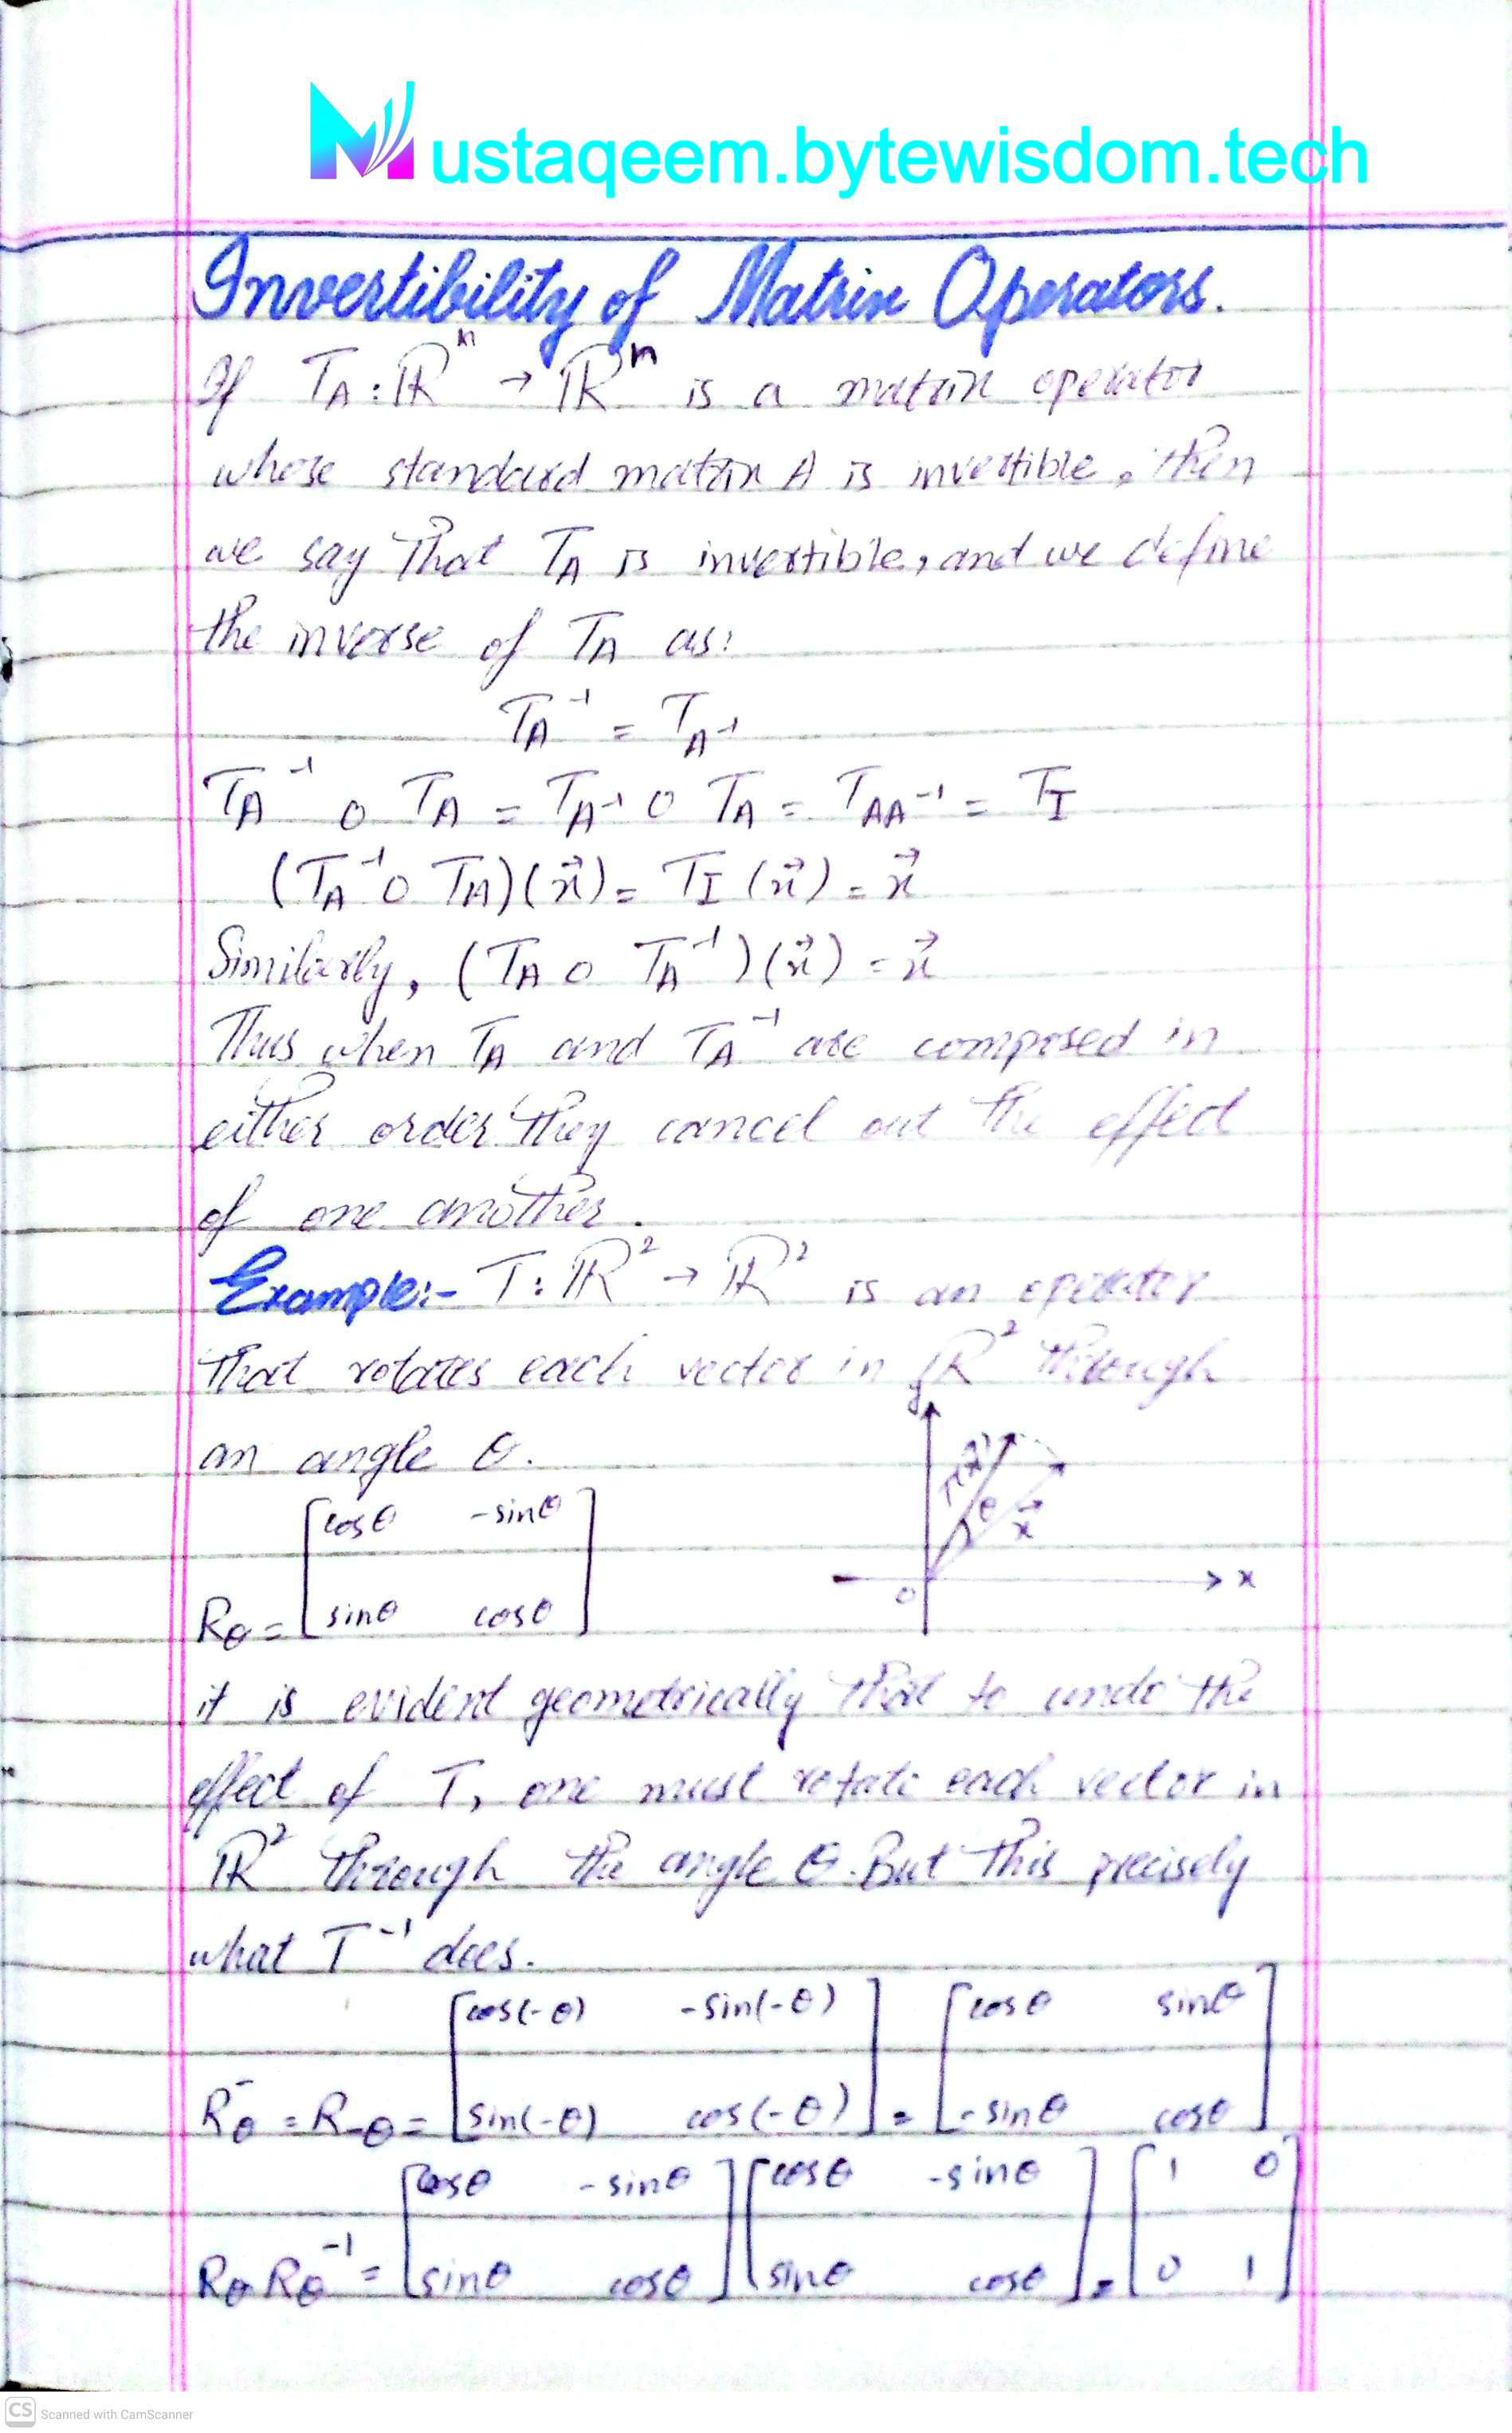 Mustaqeem.bytewisdom.tech
Invertibility of Matrix Operators.
If T_A : ℝⁿ → ℝⁿ is a matrix operator
whose standard matrix A is invertible, then
we say that T_A is invertible, and we define
the inverse of T_A as:
T_A⁻¹ = T_{A⁻¹}
T_A⁻¹ o T_A = T_{A⁻¹} o T_A = T_{AA⁻¹} = T_I
(T_A⁻¹ o T_A)(x⃗) = T_I (x⃗) = x⃗
Similarly, (T_A o T_A⁻¹)(x⃗) = x⃗
Thus when T_A and T_A⁻¹ are composed in
either order they cancel out the effect
of one another.
Example:- T : ℝ² → ℝ² is an operator
that rotates each vector in ℝ² through
an angle θ.
y
T(x⃗)
θ
x⃗
O
x
R_θ = [cosθ -sinθ
sinθ cosθ]
it is evident geometrically that to undo the
effect of T, one must rotate each vector in
ℝ² through the angle θ. But this precisely
what T⁻¹ does.
R_θ⁻ = R_-θ = [cos(-θ) -sin(-θ) = [cosθ sinθ
sin(-θ) cos(-θ)] -sinθ cosθ]
R_θ R_θ⁻¹ = [cosθ -sinθ [cosθ -sinθ = [1 0
sinθ cosθ] sinθ cosθ] 0 1]
CS Scanned with CamScanner